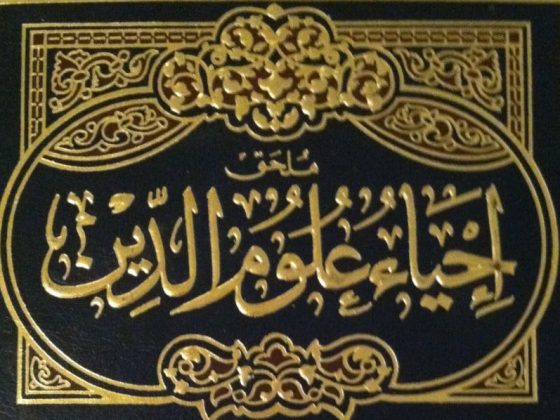 ملحق
إحياء علوم الدين